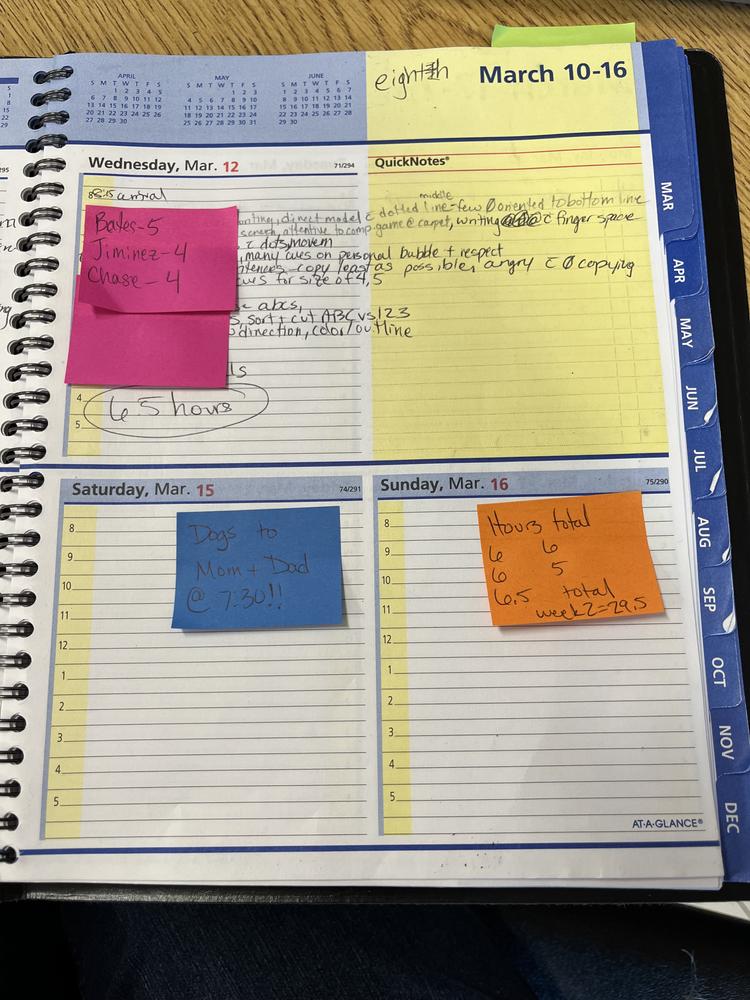 eighth
March 10-16
APRIL MAY JUNE
S M T W T F S S M T W T F S S M T W T F S
1 2 3 4 5 1 2 3 1 2 3 4 5 6 7
6 7 8 9 10 11 12 4 5 6 7 8 9 10 8 9 10 11 12 13 14
13 14 15 16 17 18 19 11 12 13 14 15 16 17 15 16 17 18 19 20 21
20 21 22 23 24 25 26 18 19 20 21 22 23 24 22 23 24 25 26 27 28
27 28 29 30 25 26 27 28 29 30 31 29 30
Wednesday, Mar. 12 71/294
QuickNotes®
8:15 arrival
middle
writing, direct model c̄ dotted line-few ∅ oriented to bottom line
attentive to comp. game @ carpet, writing c̄ finger space
c̄ dots, movem
, many cues on personal bubble + respect
copy least as possible, angry c̄ ∅ copying
for size of 4, 5
abcs,
sort + cut ABC vs 123
direction, color/outline
ls
4
5
6.5 hours
Bates-5
Jiminez-4
Chase-4
Saturday, Mar. 15 74/291
8
9
10
11
12
1
2
3
4
5
Dogs to
Mom + Dad
@ 7:30!!
Sunday, Mar. 16 75/290
8
9
10
11
12
1
2
3
4
5
Hours total
6 6
6 5
6.5 total
week 2=29.5
AT-A-GLANCE®
MAR
APR
MAY
JUN
JUL
AUG
SEP
OCT
NOV
DEC